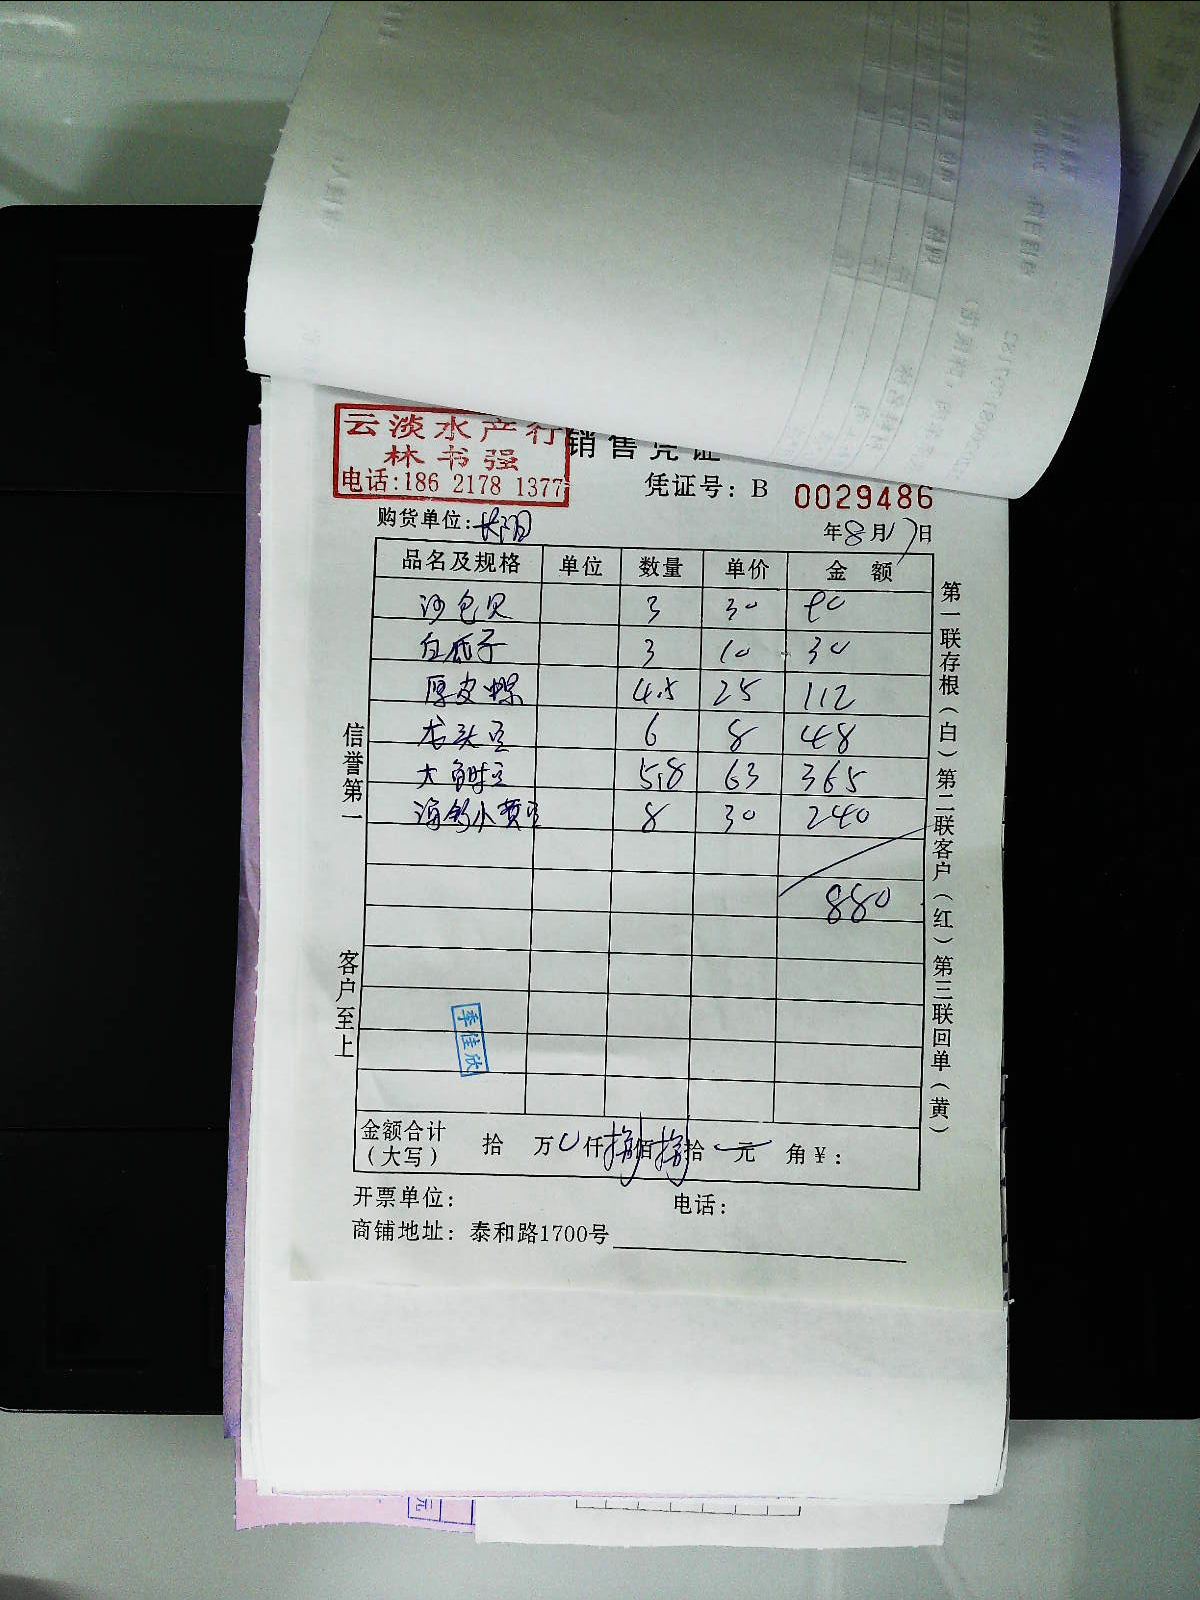 云淡水产行
林书强
电话:186 2178 1377
销售凭证
凭证号: B 0029486
购货单位: 长阳
年8月17日
品名及规格 单位 数量 单价 金额
沙包贝 3 30 90
白瓜子 3 10 30
厚皮螺 4.5 25 112
龙头豆 6 8 48
大 5.8 63 365
海 小黄 8 30 240
880
信誉第一
客户至上
第一联存根(白)第二联客户(红)第三联回单(黄)
季佳欣
金额合计
(大写) 拾 万 0 仟 捌 佰 捌 拾 元 角 ¥:
开票单位: 电话:
商铺地址: 泰和路1700号
元